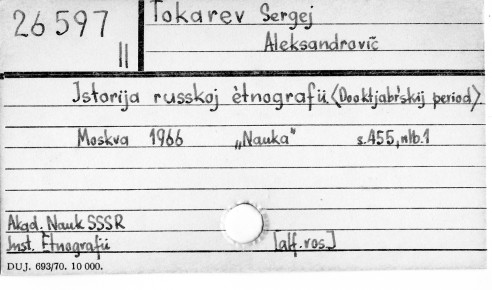 26 597
II
Tokarev Sergej
Aleksandrovič
Istorija russkoj ètnografii. <Dooktjabŕskij period>.
Moskva 1966 „Nauka" s. 455, nlb. 1
Akad. Nauk SSSR
Inst. Ètnografii [alf. ros.]
DUJ. 693/70. 10 000.